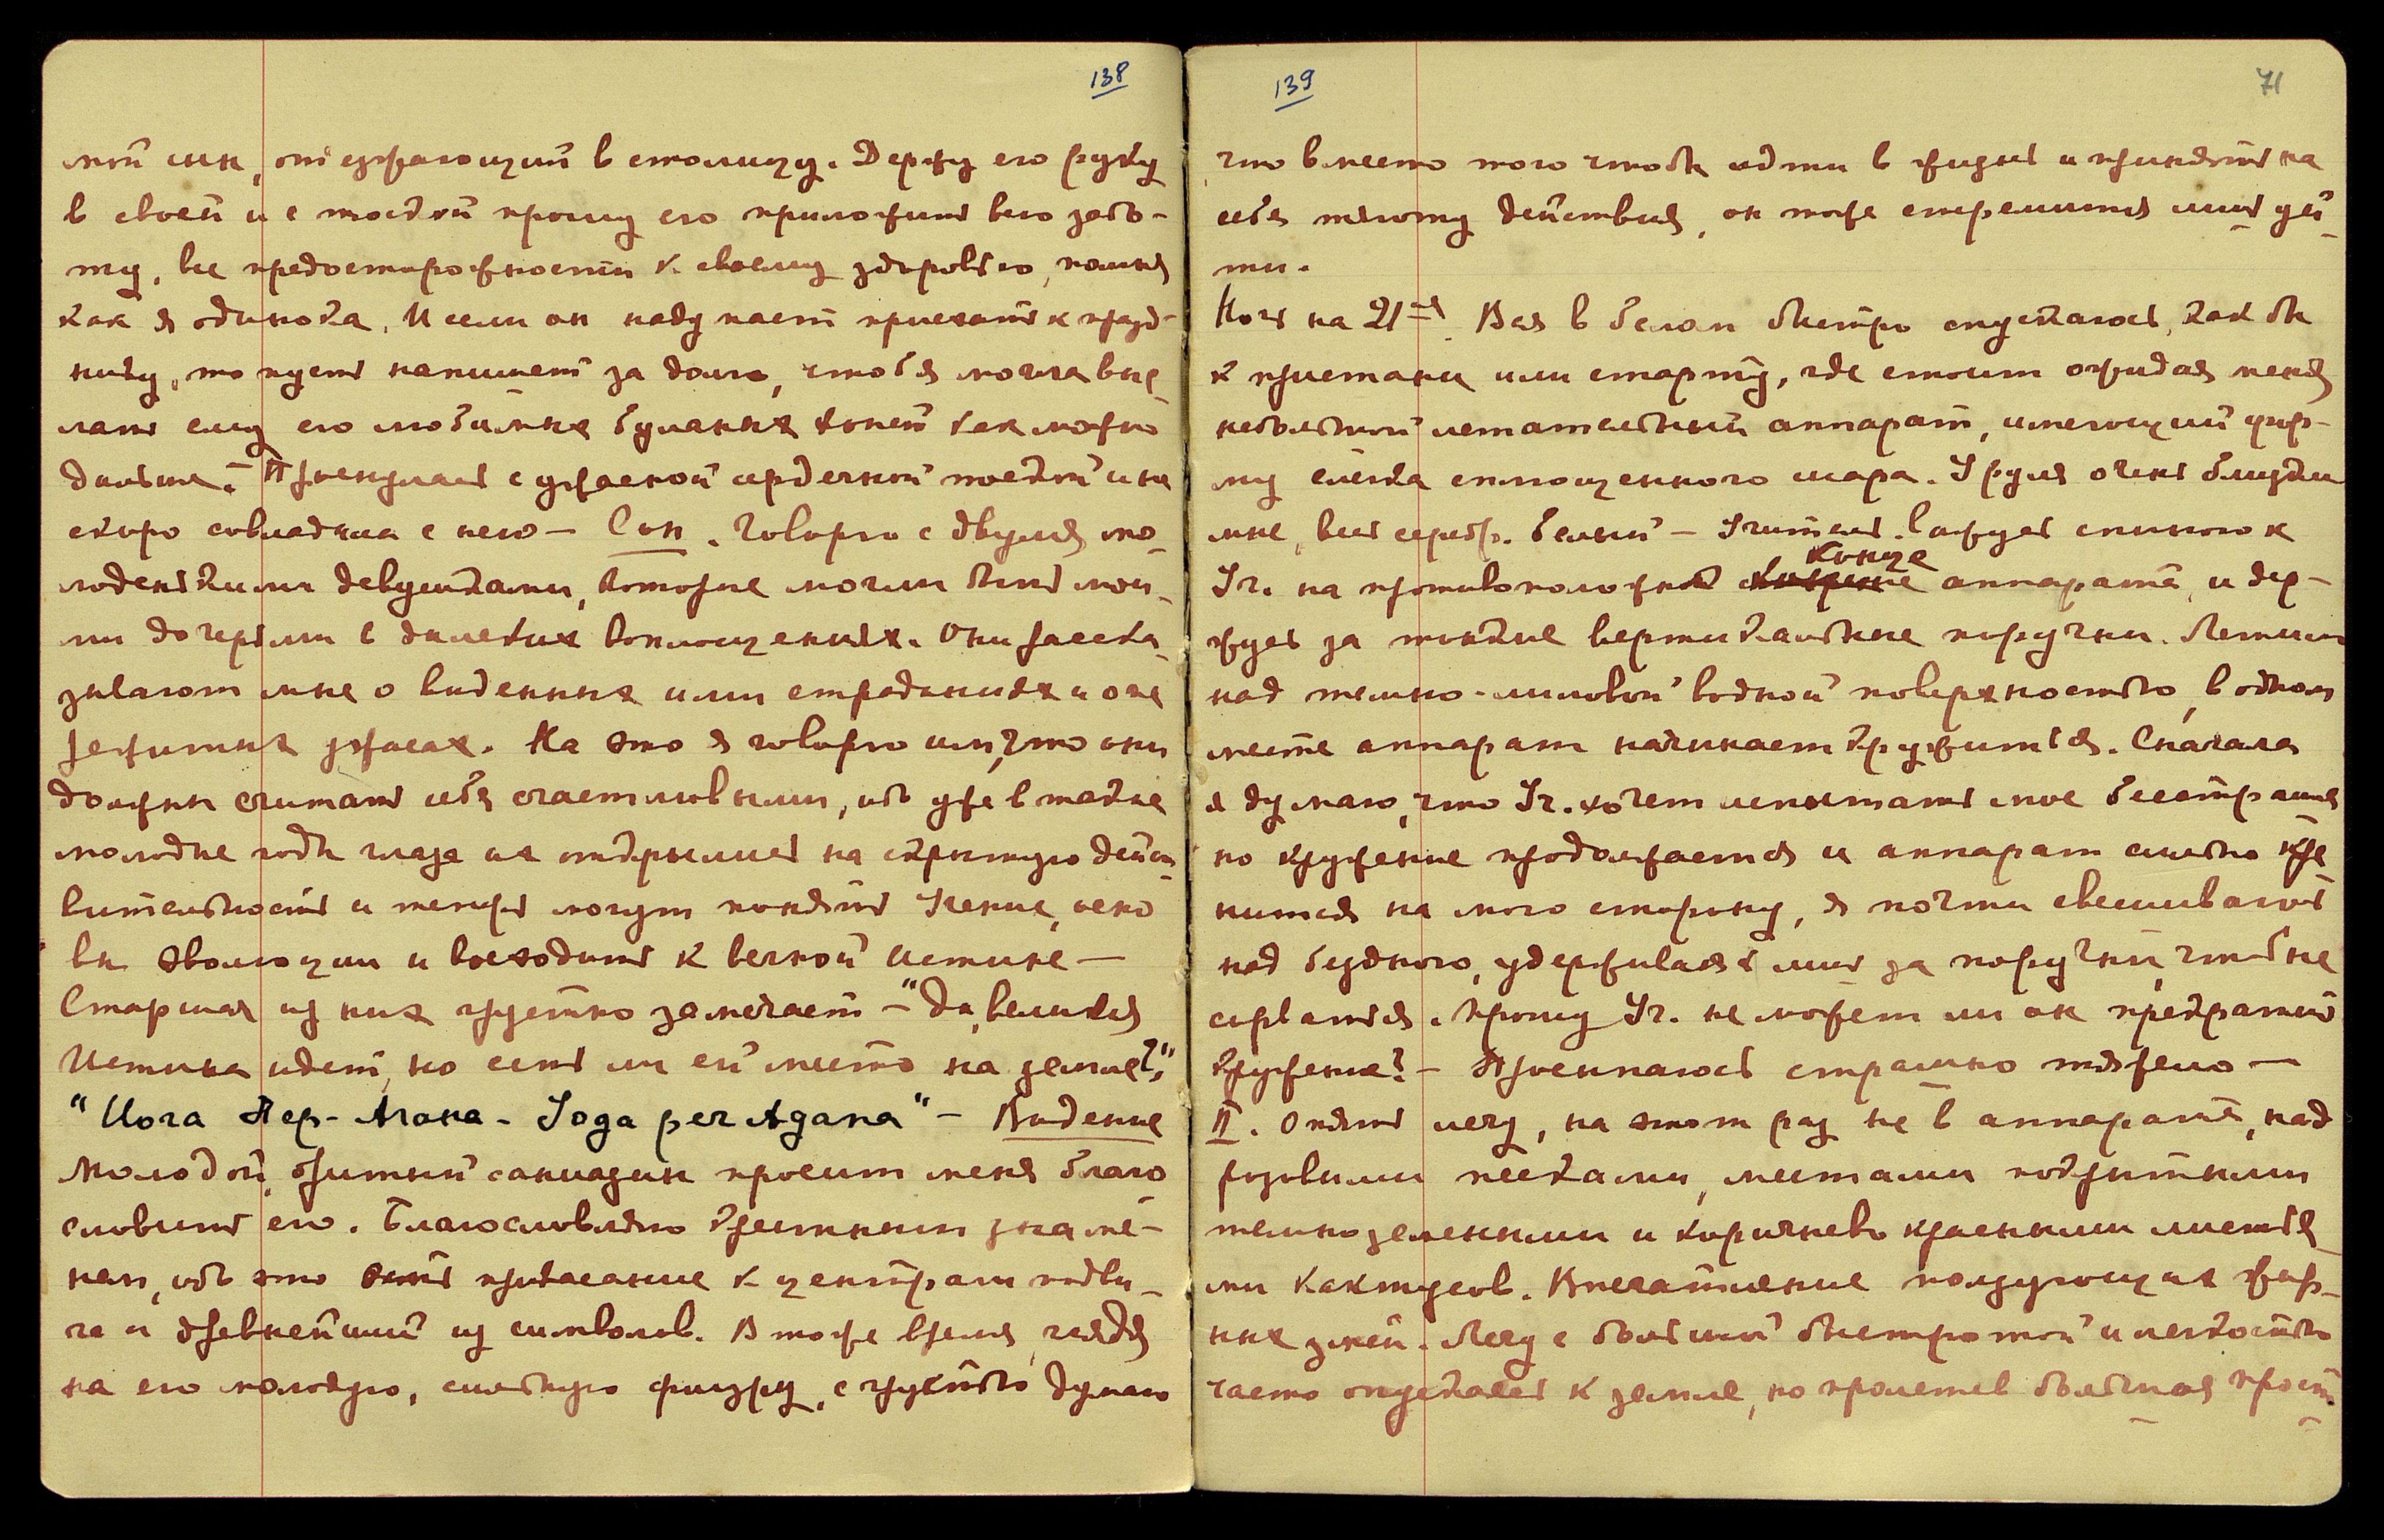 138
мой сын, отъезжающий в столицу. Держу его руку
в своей и с тоской прошу его приложить всю забо-
ту, все предосторожности к своему здоровью, помня
как я одинока. И если он надумает приехать к празд-
нику, то пусть напишет за долго, чтоб я могла выс-
лать ему его любимых буланых коней как можно
дальше. – Проснулась с ужасной сердечной тоской и не
скоро совладала с нею – Сон. Говорю с двумя мо-
лоденькими девушками, которые могли быть мои-
ми дочерьми в далеких воплощениях. Они расска-
зывают мне о виденных ими страданиях и о пе
режитых ужасах. На это я говорю им, что они
должны считать себя счастливыми, ибо уже в такие
молодые годы глаза их открылись на скрытую дейст-
вительность и теперь могут понять Учение, осно
вы эволюции и восходить к вечной Истине –
Старшая из них грустно замечает – "Да, великая
Истина идет, но есть ли ей место на земле?"
"Иога Пер-Агана - Yoga per Agana" – Видение
Молодой, бритый саниазин просит меня благо
словить его. Благословляю крестным знаме-
нем, ибо это есть прикасание к центрам подви-
га и древнейший из символов. В то же время, глядя
на его молодую, сильную фигуру, с грустью думаю
139
71
что вместо того чтобы идти в жизнь и принять на
себя тяготу действия, он тоже стремится лишь уй-
ти.
Ночь на 21-ое. Вся в белом быстро спускаюсь, как бы
к пристани или старту, где стоит ожидая меня
небольшой летательный аппарат, имеющий фор-
му слегка сплющенного шара. У руля очень близкий
мне, весь серебр. белый – Учитель. Сажусь спиною к
Уч. на противоположной конце аппарата, и дер-
жусь за тонкие вертикальные поручни. Летим
над темно-лиловой водной поверхностью, в одном
месте аппарат начинает кружиться. Сначала
я думаю, что Уч. хочет испытать мое бесстрашие
но кружение продолжается и аппарат сильно кре
нится на мою сторону, я почти свешиваюсь
над бездною, удерживаясь лишь за поручни, чтоб не
сорваться. Прошу Уч. не может ли он прекратить
кружение? – Просыпаюсь страшно тяжело –
II. Опять лечу, на этот раз не в аппарате, над
розовыми песками, местами покрытыми
темнозелеными и коричнево красными листья-
ми кактусов. Впечатление ползующих жир-
ных змей. Лечу с большой быстротой и легкостью
часто опускаясь к земле, но пролетев большая прост-